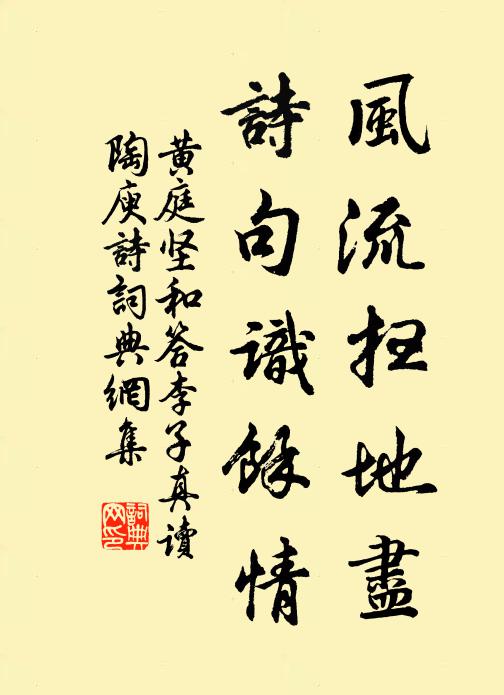 風流扫地盡
詩句識餘情
黄庭坚和答李子真讀
陶庾詩詞典網集
詞典网印